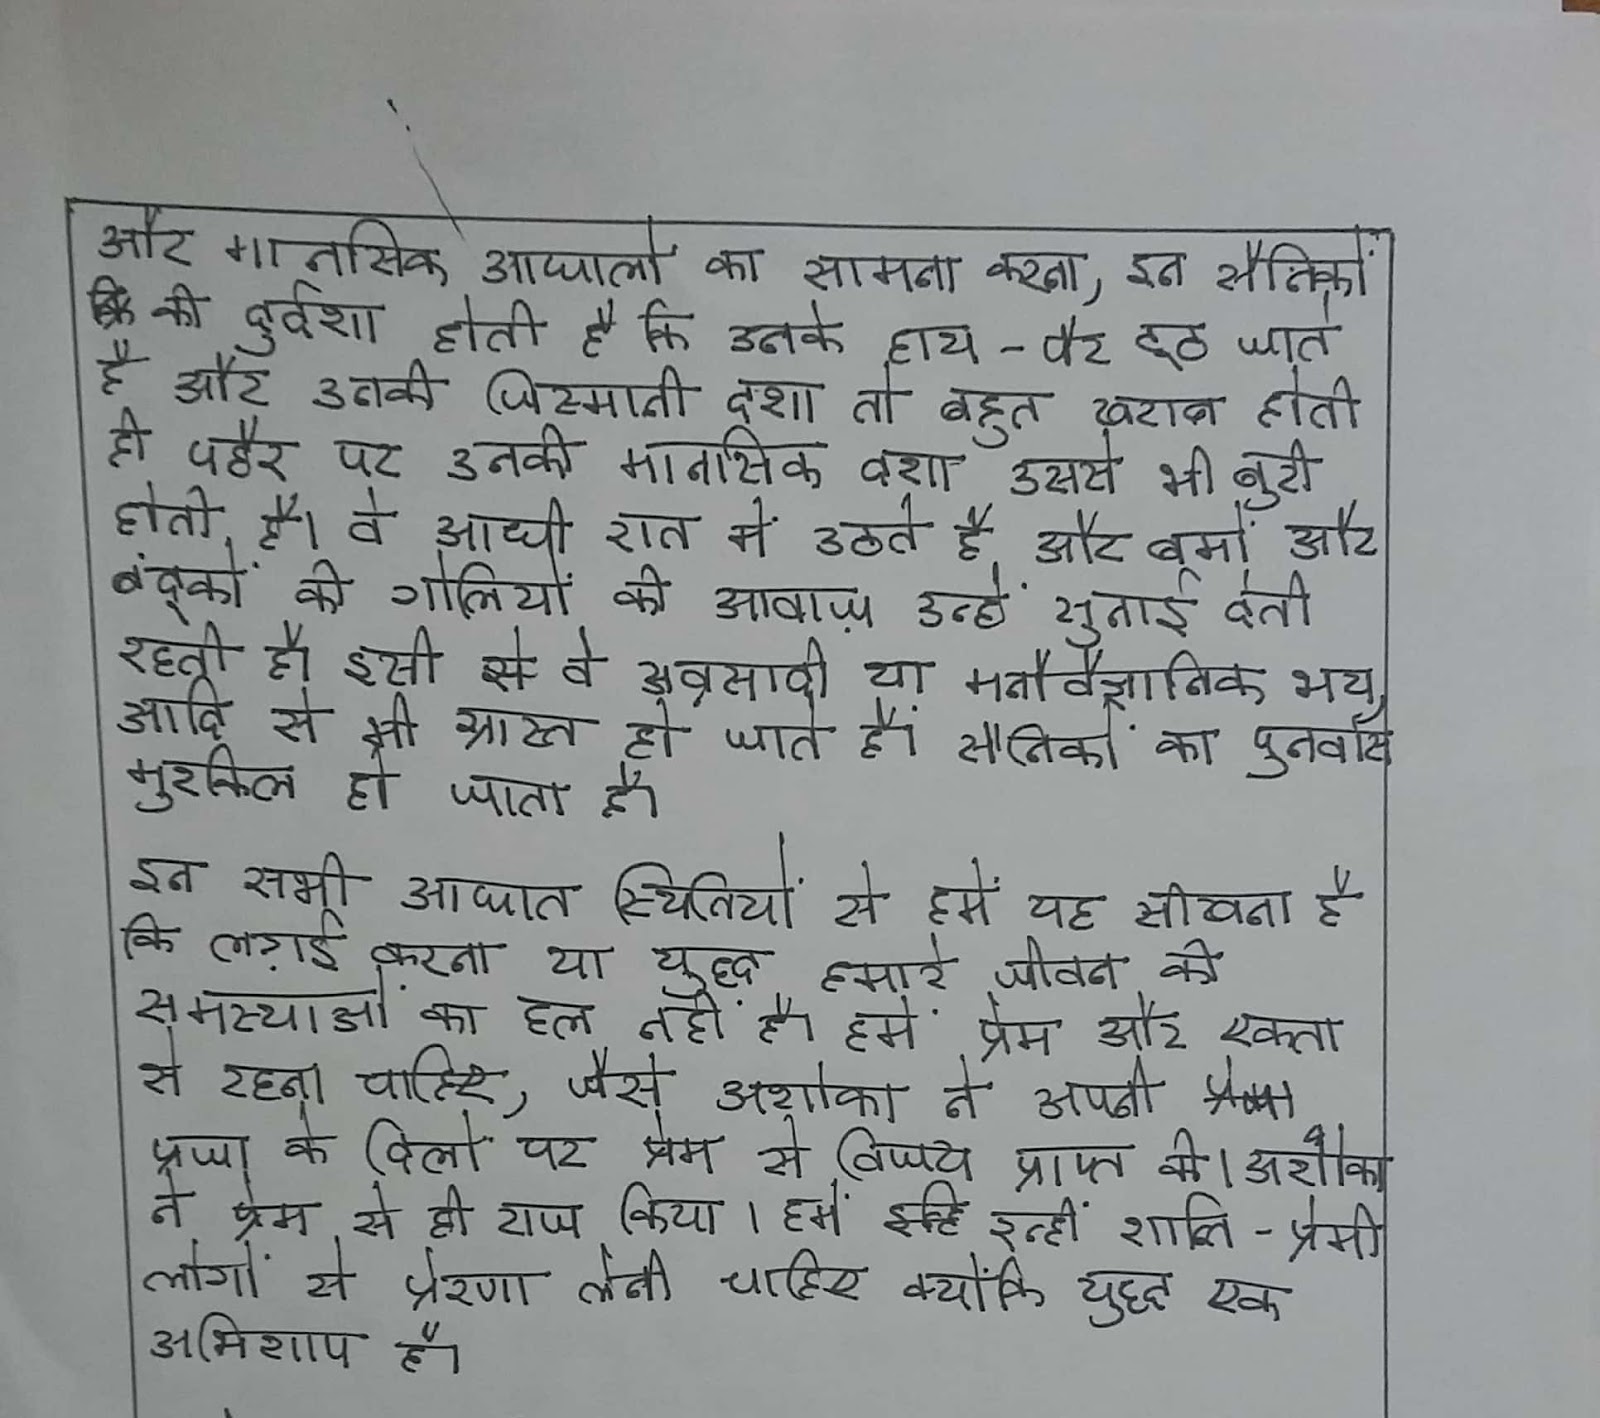 और मानसिक आघातों का सामना करना, इन सैनिकों
की दुर्दशा होती है कि उनके हाथ - पैर टूट जाते
है और उनकी जिस्मानी दशा तो बहुत खराब होती
ही पर उनकी मानसिक दशा उससे भी बुरी
होती है। वे आधी रात में उठते है और बमों और
बंदूकों की गोलियों की आवाज़ उन्हें सुनाई देती
रहती है। इसी से वे अवसादी या मनौवैज्ञानिक भय
आदि से भी ग्रास्त हो जाते हैं। सैनिकों का पुनर्वास
मुश्किल हो जाता है।
इन सभी आघात स्थितियों से हमें यह सीखना है
कि लड़ाई करना या युद्ध हमारे जीवन की
समस्याओं का हल नहीं है। हमें प्रेम और एकता
से रहना चाहिए, जैसे अशोका ने अपनी
प्रजा के दिलों पर प्रेम से विजय प्राप्त की। अशोका
ने प्रेम से ही राज किया। हमें इन्हीं शांति - प्रेमी
लोगों से प्रेरणा लेनी चाहिए क्योंकि युद्ध एक
अभिशाप है।